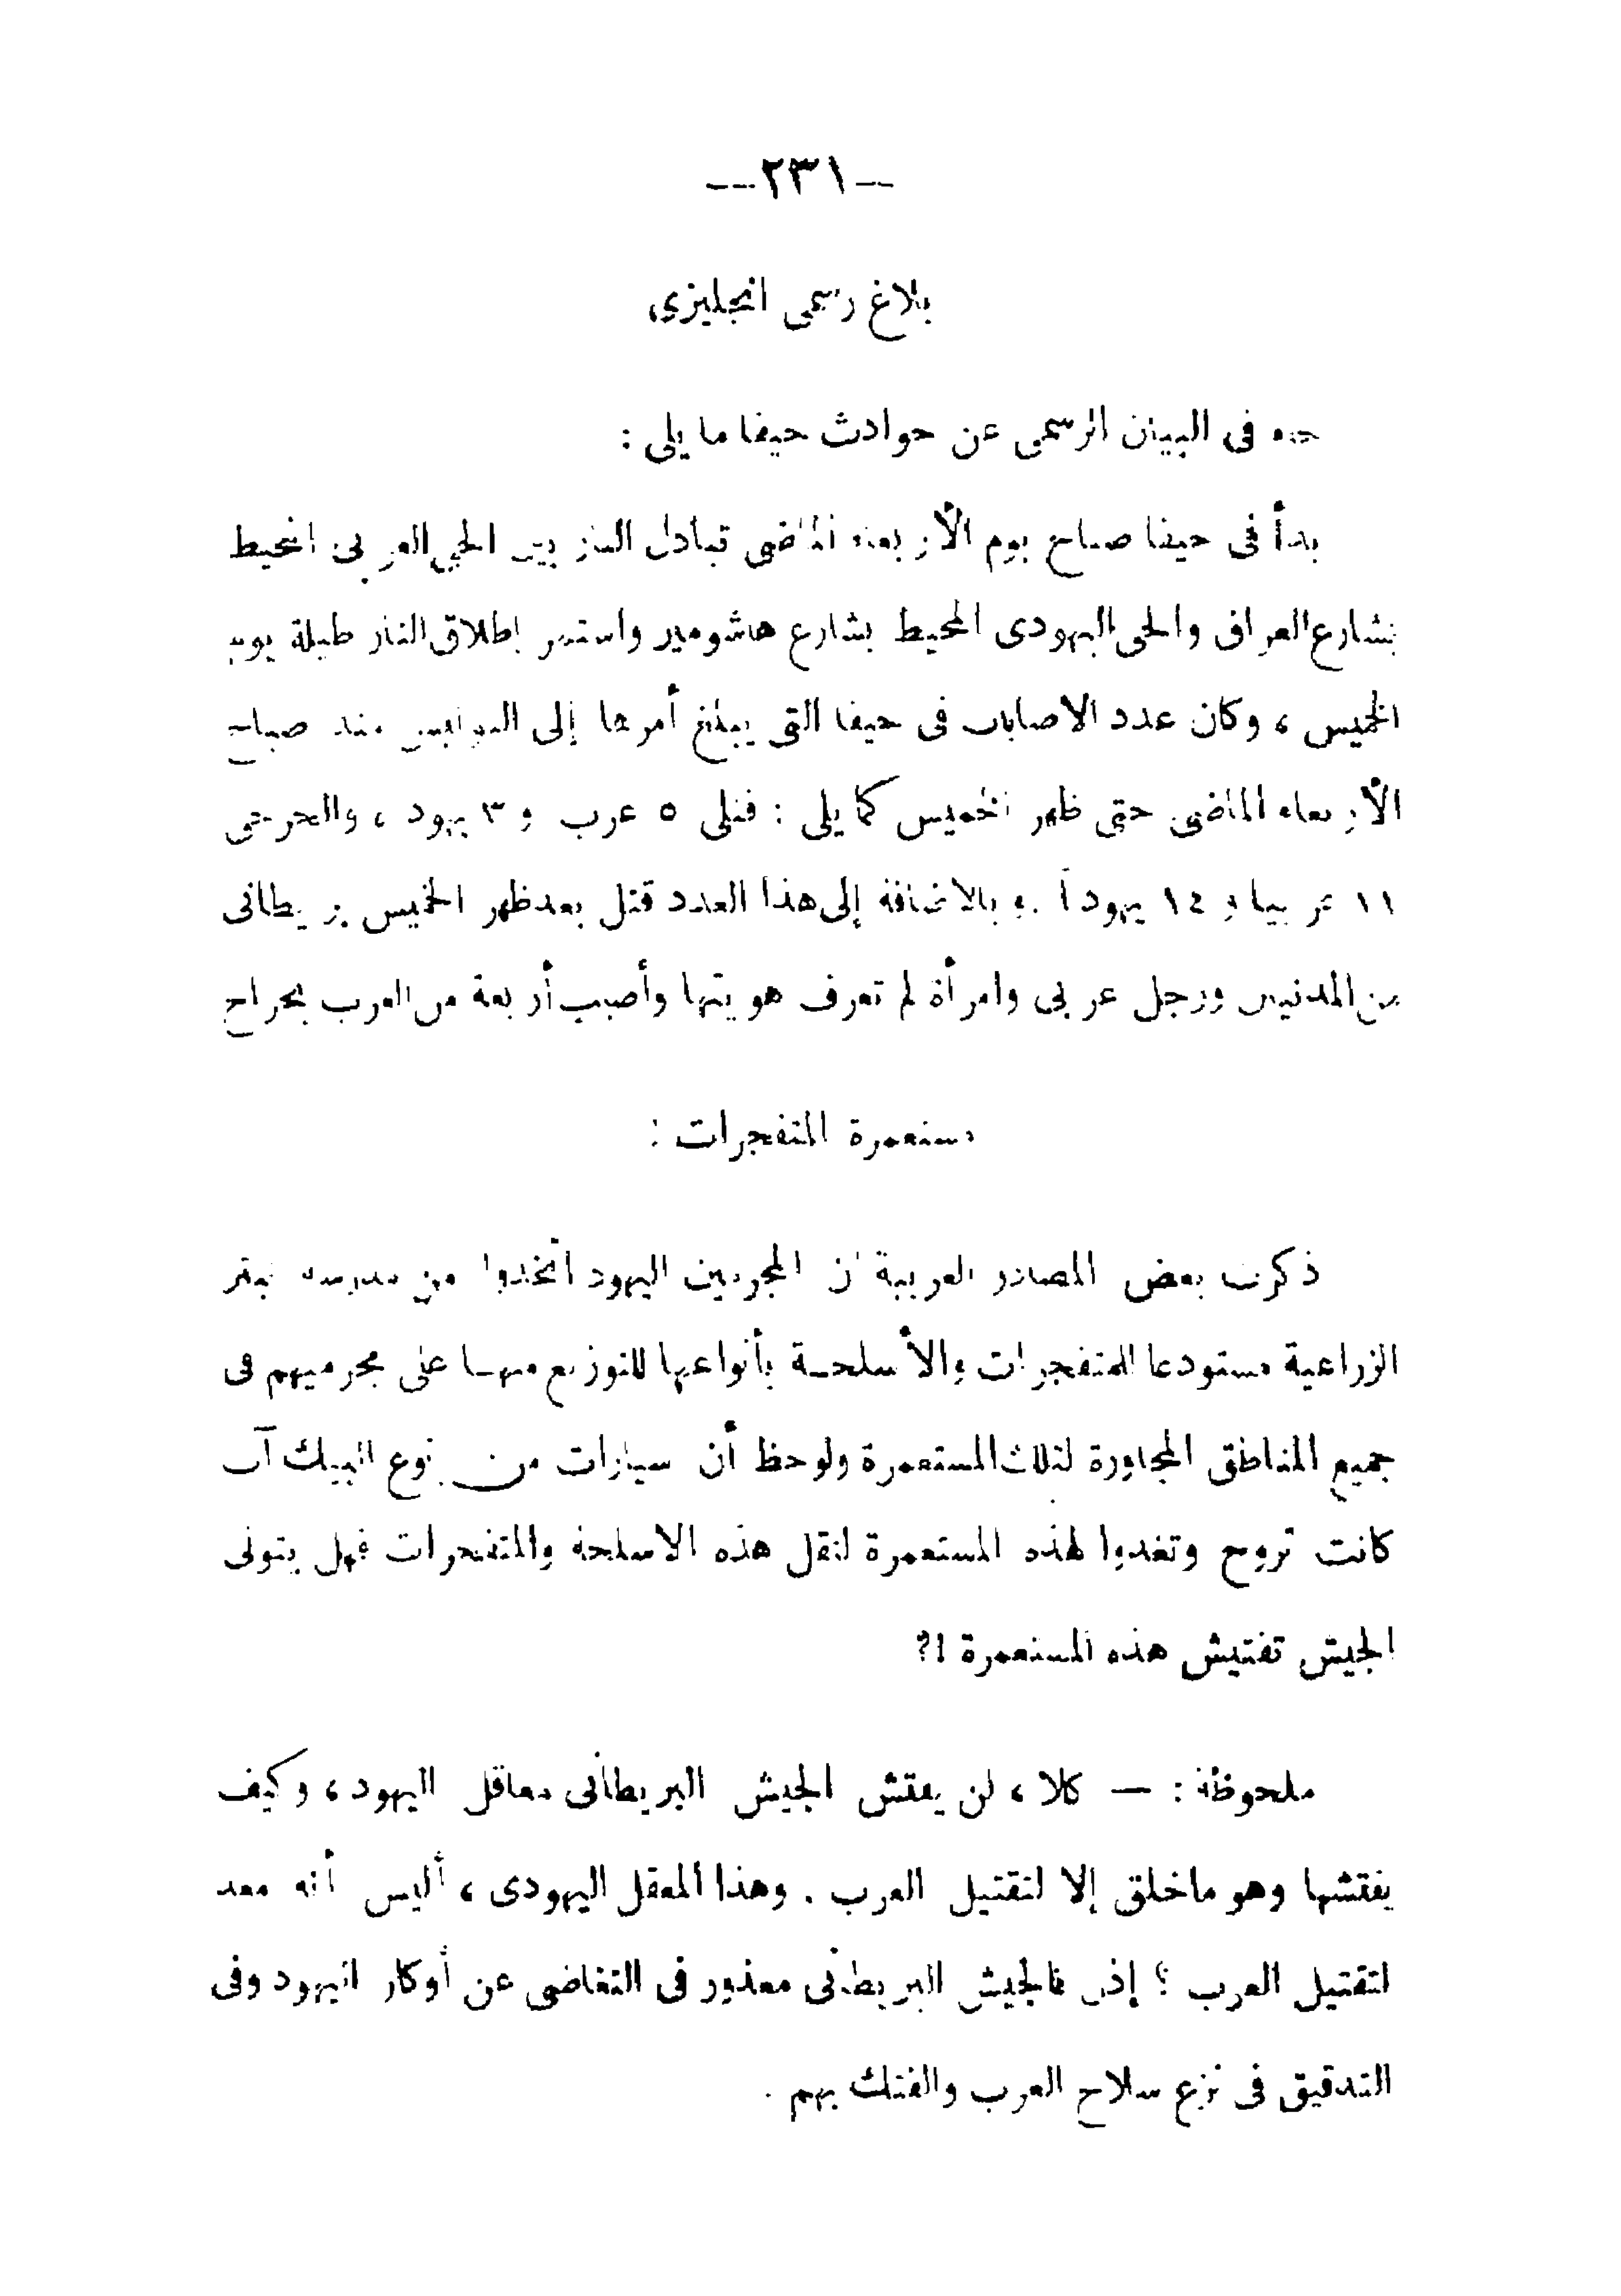 --٢٣١---
بلاغ رسمى انجليزي
جاء فى البيان الرسمى عن حوادث حيفا ما يلى :
بدأ فى حيفا صباح يوم الأربعاء الماضى تبادل النار بين الحي العربى المحيط
بشارع العراق والحى اليهودى المحيط بشارع هاشومير واستمر إطلاق النار طيلة يوم
الخميس ، وكان عدد الاصابات فى حيفا التى يبلغ أمرها إلى البوليس منذ صباح
الأربعاء الماضى حتى ظهر الخميس كما يلى : قتلى ٥ عرب و ٣ يهود ، والجرحى
١١ عربيا و ١٤ يهوداً . و بالاضافة إلى هذا العدد قتل بعد ظهر الخميس بريطانى
من المدنيين ورجل عربى وامرأة لم تعرف هويتها وأصيب أربعة من العرب بجراح
مستعمرة المتفجرات :
ذكرت بعض المصادر العربية أن المجرمين اليهود اتخذوا من مدرسة نيتر
الزراعية مستودعا للمتفجرات والأسلحة بأنواعها للتوزيع منها على مجرميهم فى
جميع المناطق المجاورة لتلك المستعمرة ولوحظ أن سيارات من نوع البيك آب
كانت تروح وتغدوا لهذه المستعمرة لنقل هذه الاسلحة والمتفجرات فهل يتولى
الجيش تفتيش هذه المستعمرة !؟
ملحوظة : — كلا ، لن يفتش الجيش البريطانى معاقل اليهود ، وكيف
يفتشها وهو ما خلق إلا لتقتيل العرب . وهذا المعقل اليهودى ، أليس أنه معد
لتقتيل العرب ؟ إذن فالجيش البريطانى معذور فى التغاضى عن أوكار اليهود وفى
التدقيق فى نزع سلاح العرب والفتك بهم .